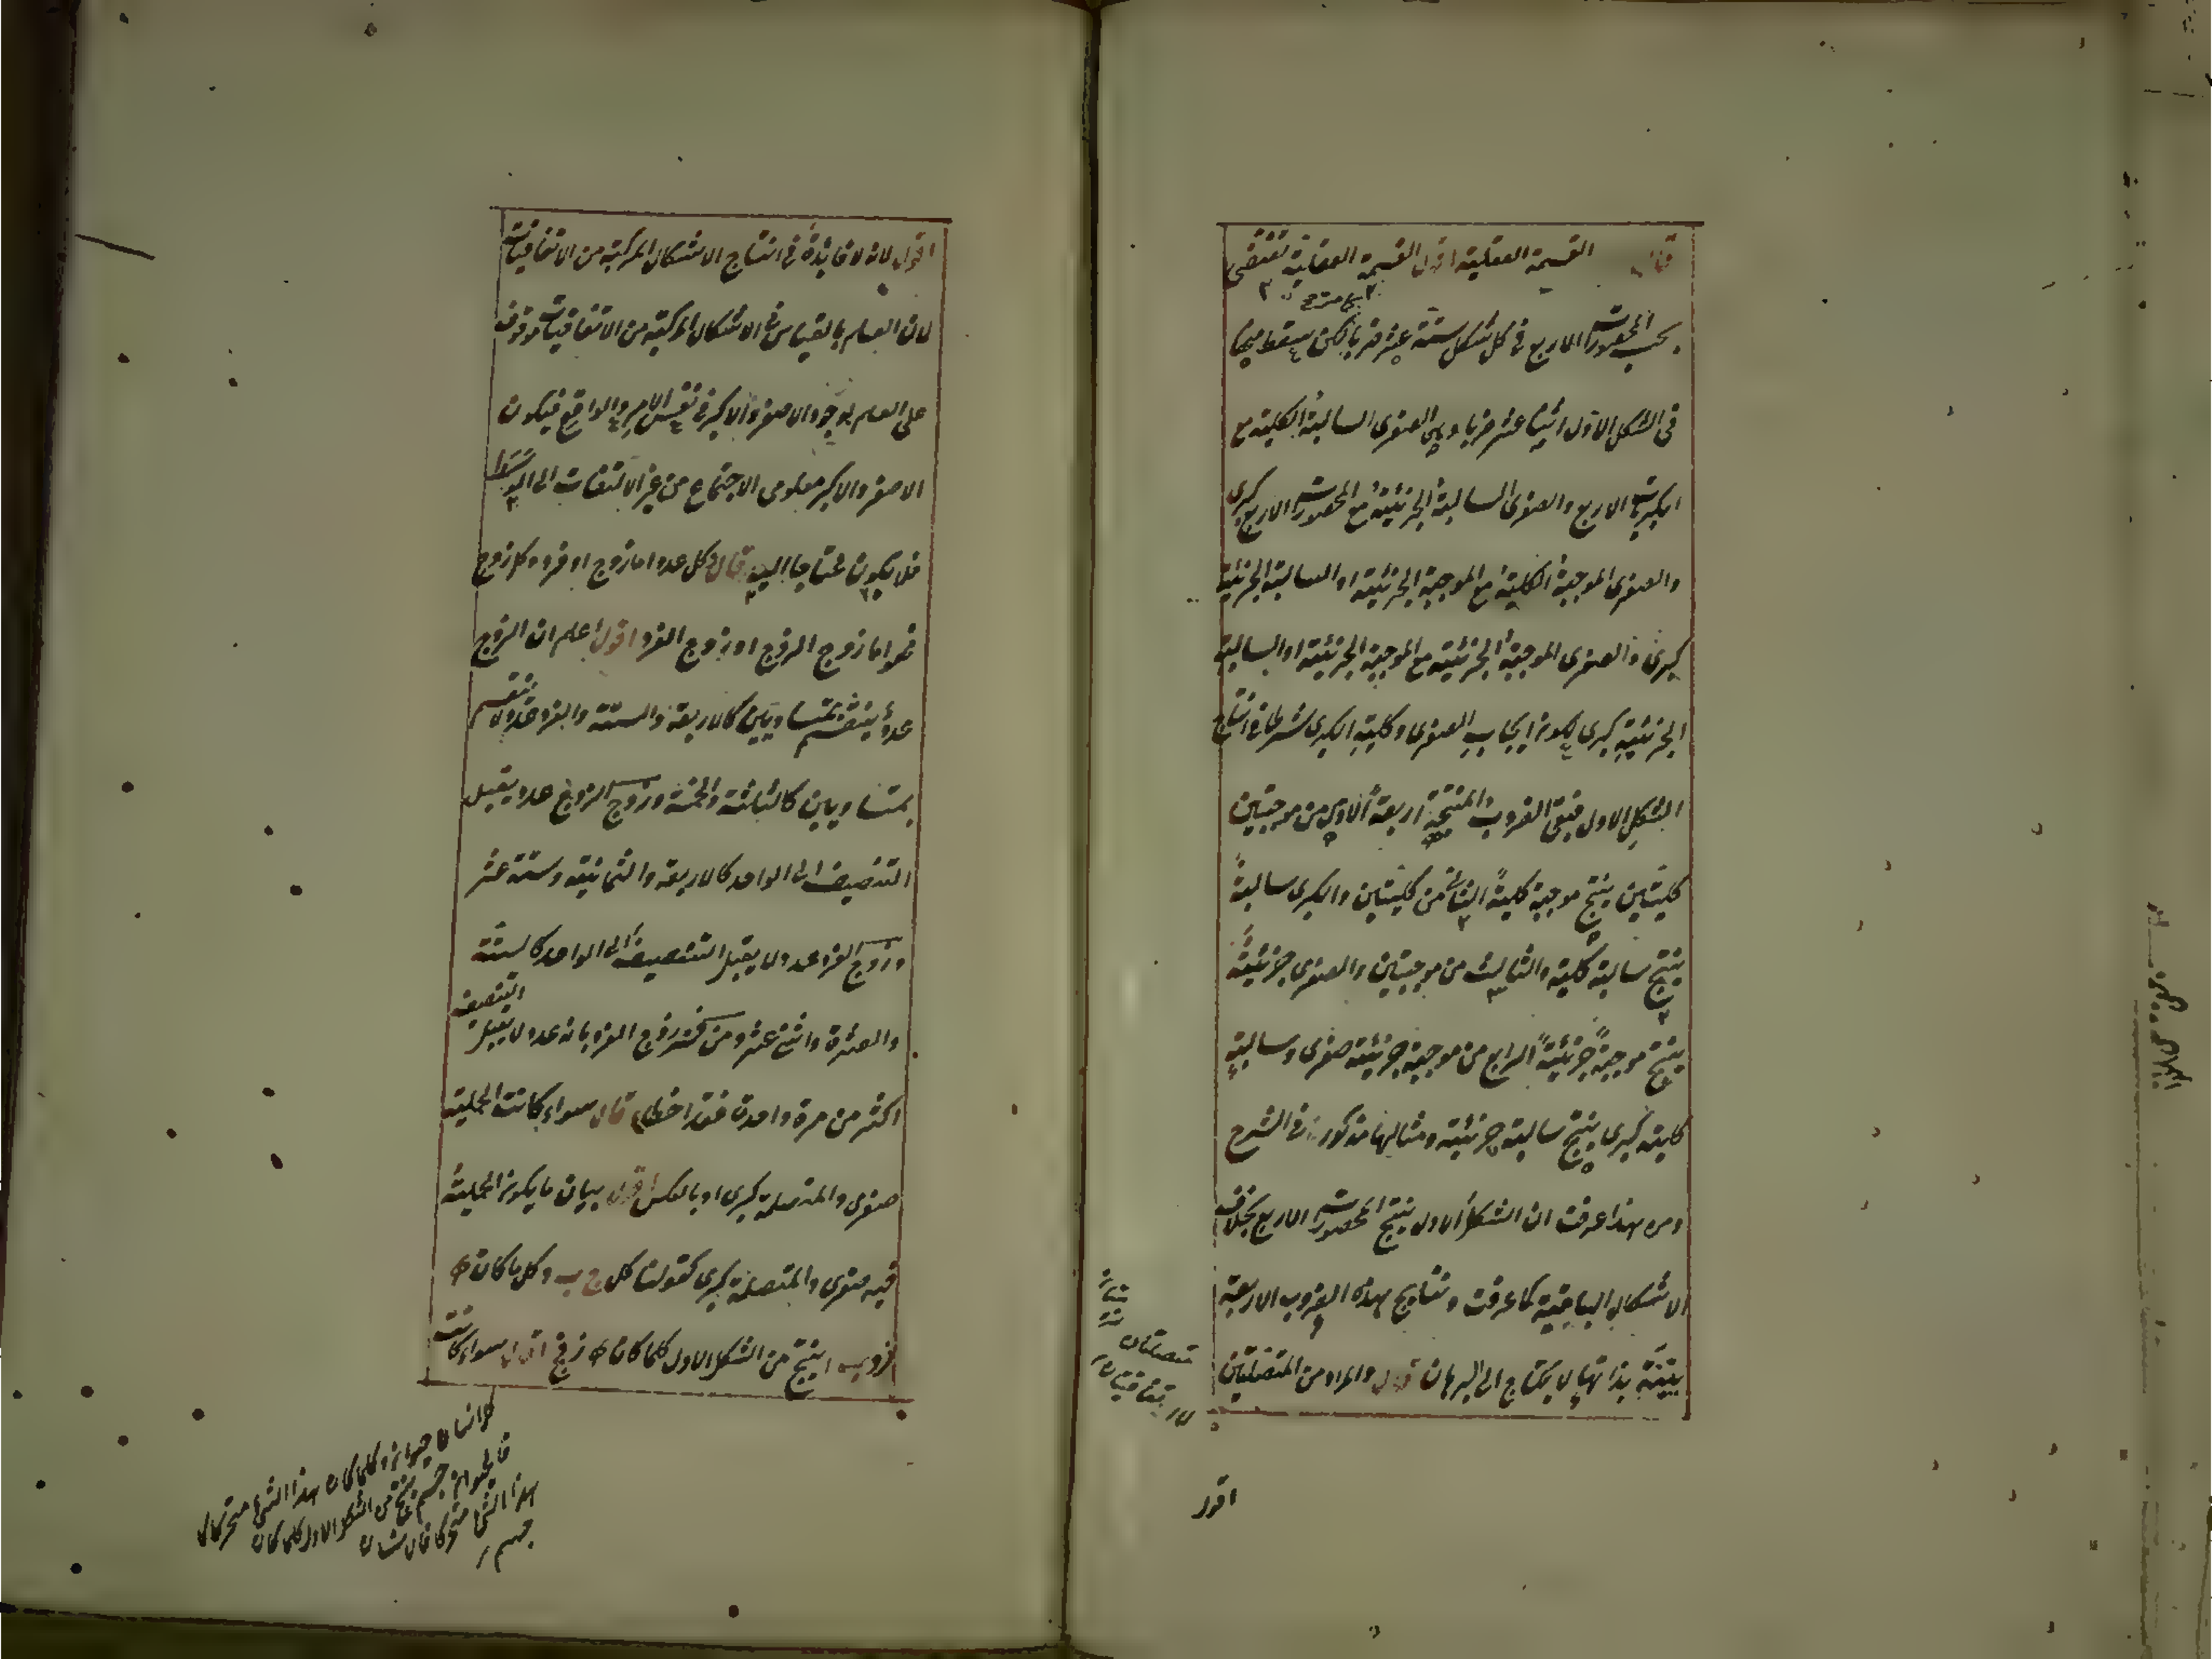 قال القسمة العقلية اقول القسمة العقلية تقتضى
بحسب المحصورات الاربع فى كل شكل ستة عشر ضربا لكن يسقط منها
فى الشكل الاول اثنا عشر ضربا وهى الصغرى السالبة الكلية مع
الكبريات الاربع والصغرى السالبة الجزئية مع المحصورات الاربع كبرى
والصغرى الموجبة الكلية مع الموجبة الجزئية او السالبة الجزئية
كبرى والصغرى الموجبة الجزئية مع الموجبة الجزئية او السالبة
الجزئية كبرى لكون ايجاب الصغرى وكلية الكبرى شرطا فى انتاج
الشكل الاول فبقى الضروب المنتجة اربعة الاول من موجبتين
كليتين ينتج موجبة كلية الثانى من كليتين والكبرى سالبة
ينتج سالبة كلية والثالث من موجبتين والصغرى جزئية
ينتج موجبة جزئية الرابع من موجبة جزئية صغرى وسالبة
كلية كبرى ينتج سالبة جزئية ومثالها مذكورة فى الشرح
ومن هذا عرفت ان الشكل الاول ينتج المحصورات الاربع بخلاف
الاشكال الباقية كما عرفت ونتايج هذه الضروب الاربعة
بينة بذاتها لا يحتاج الى البرهان قوله والمراد من المتصلتين
اقول
اقول لانه لا فائدة فى انتاج الاشكال المركبة من الاتفاقيات
لان العلم بالقياس فى الاشكال المركبة من الاتفاقيات موقوف
على العلم بوجود الاصغر والاكبر فى نفس الامر والواقع فيكون
الاصغر والاكبر معلومى الاجتماع من غير الالتفات الى الوسط
فلا يكون محتاجا اليه قال وكل عدد اما زوج او فرد وكل زوج
فهو اما زوج الزوج او زوج الفرد اقول اعلم ان الزوج
عدد ينقسم بمتساويين كالاربعة والستة والفرد عدد لا ينقسم
بمتساويين كالثلثة والخمسة وزوج الزوج عدد يقبل
التنصيف الى الواحد كالاربعة والثمانية وستة عشر
وزوج الفرد عدد لا يقبل التنصيف الى الواحد كالستة
والعشرة واثنى عشر ومن فسر زوج الفرد بانه عدد لا يقبل التنصيف
اكثر من مرة واحدة فقد اخطأ قال سواء كانت الحملية
صغرى والمتصلة كبرى او بالعكس اقول بيان ما يكون الحملية
فيه صغرى والمتصلة كبرى كقولنا كل ج ب وكل ما كان ه
ز ينتج من الشكل الاول كلما كان ه ز ج اقول سواء كانت
كل انسان حيوان وكلما كان هذا الشئ متحركا
فالحيوان جسم ينتج من الشكل الاول كلما كان
هذا الشئ متحركا فالانسان
جسم